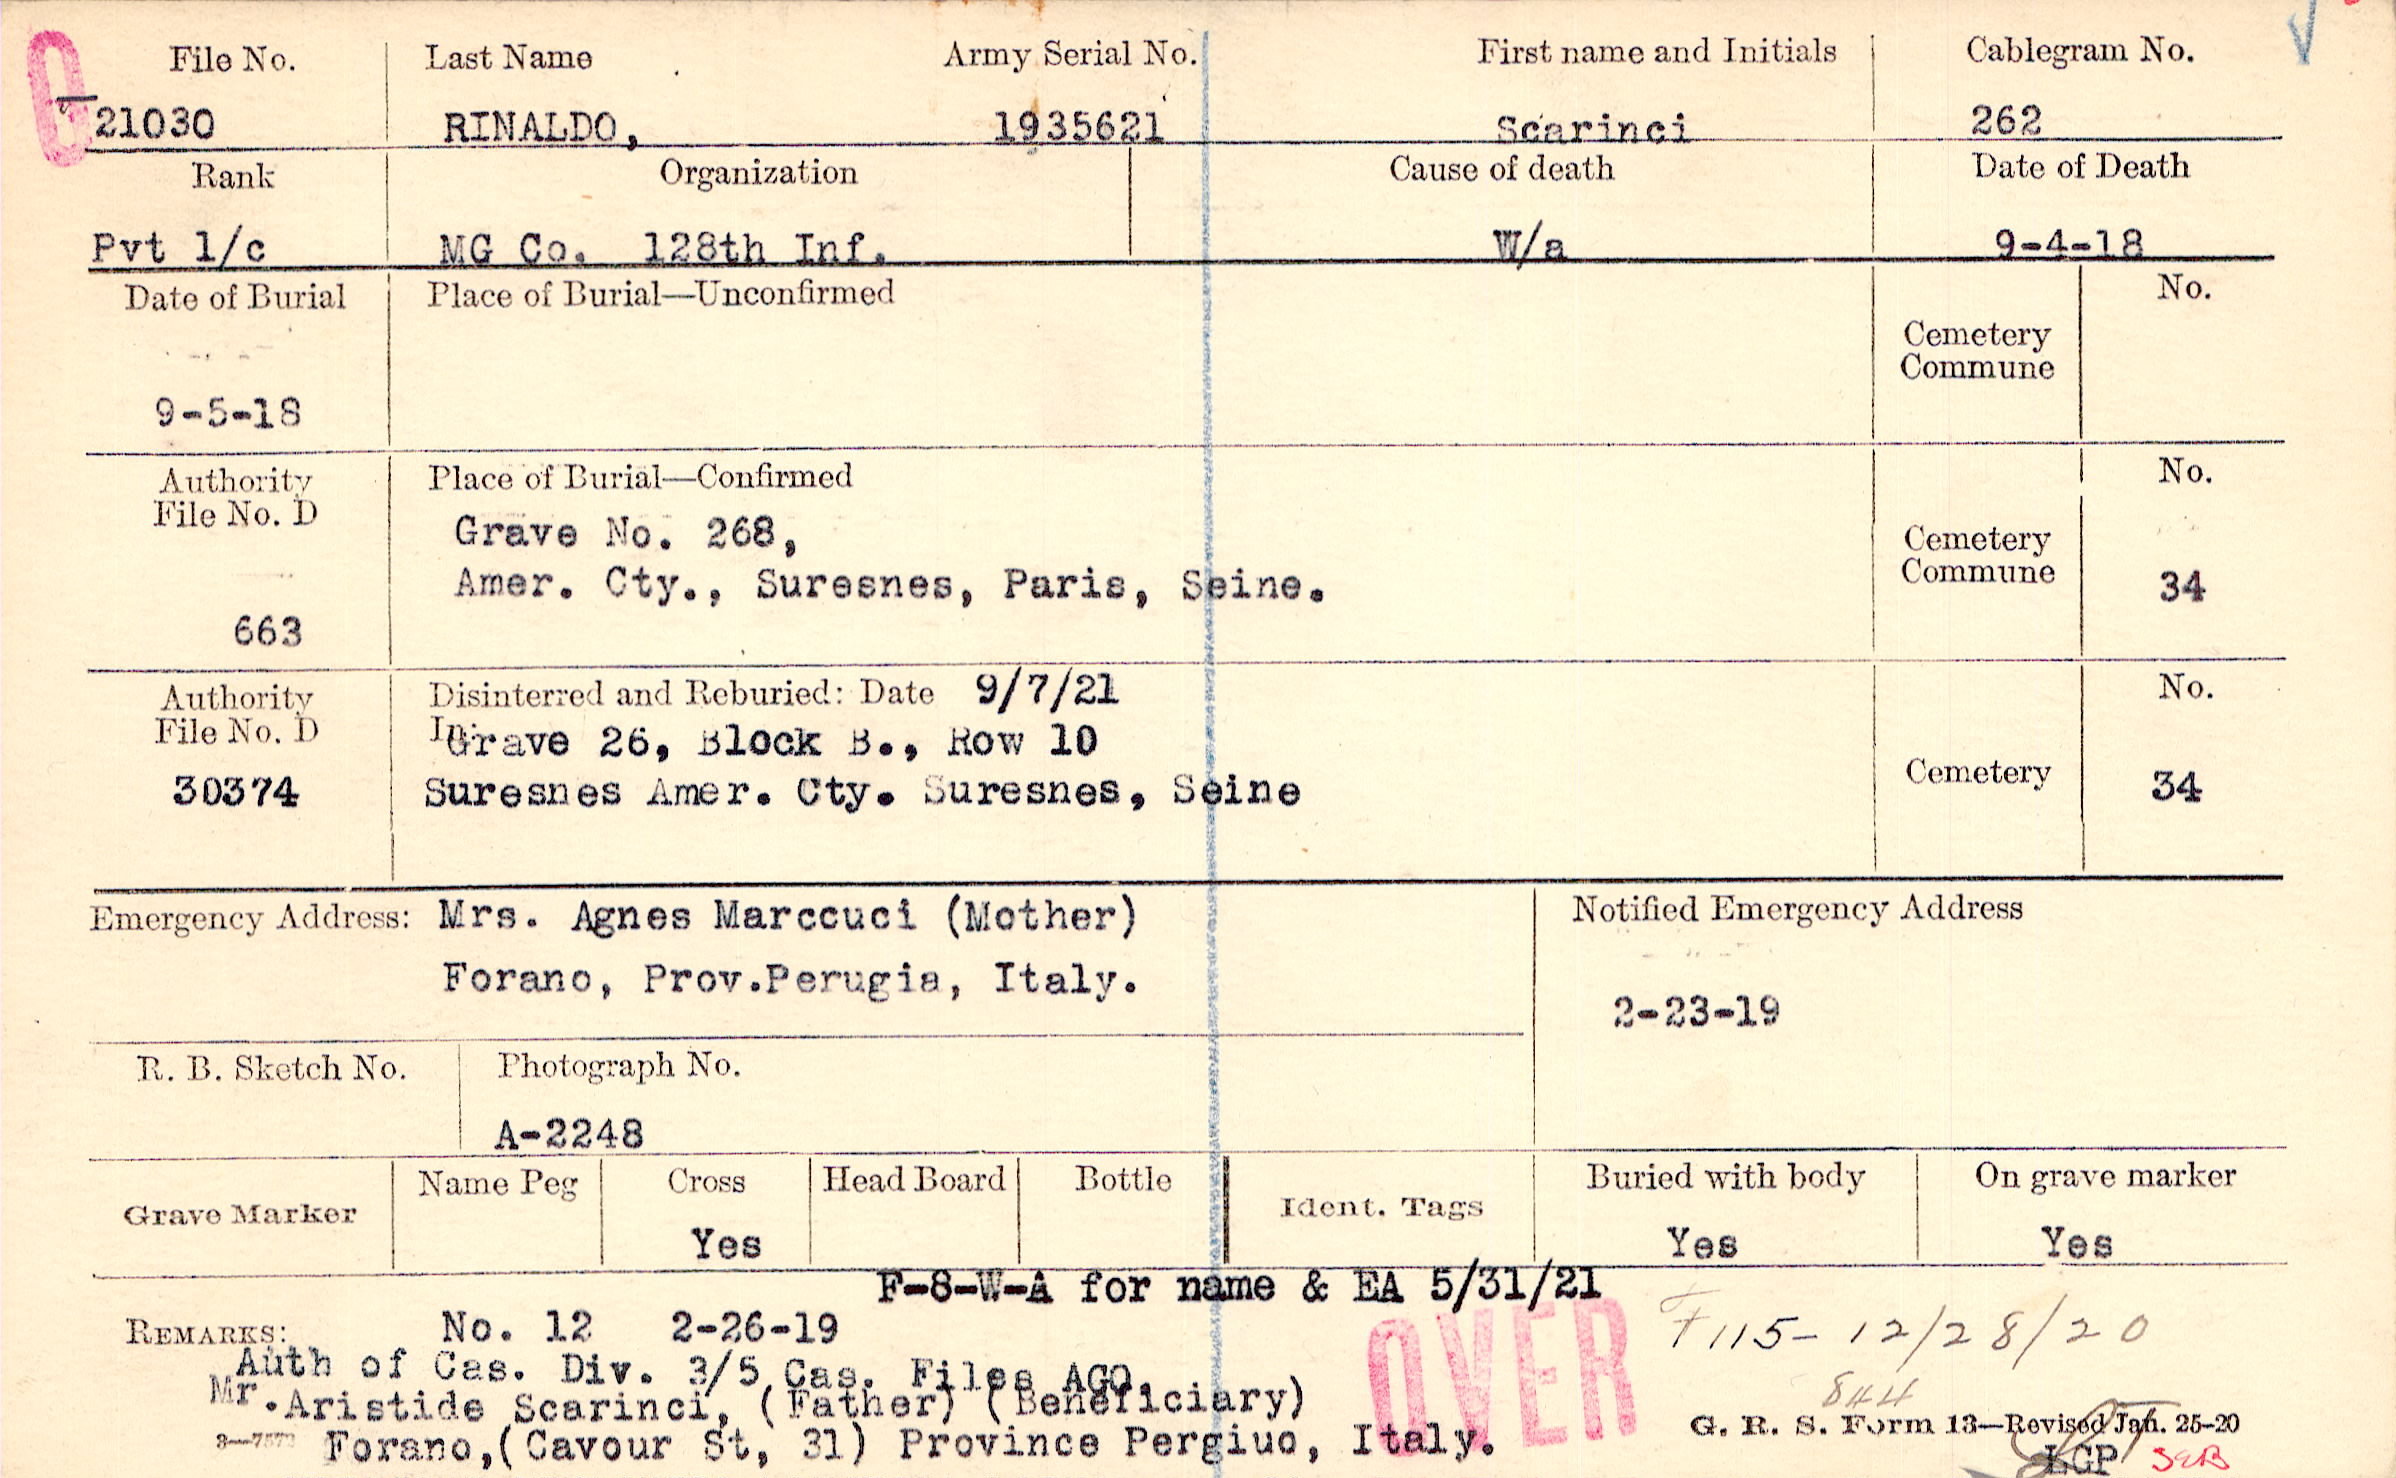 File No. Last Name Army Serial No. First name and Initials Cablegram No.
21030 RINALDO, 1935621 Scarinci 262
Rank Organization Cause of death Date of Death
Pvt 1/c MG Co. 128th Inf. W/a 9-4-18
Date of Burial Place of Burial—Unconfirmed No.
Cemetery
Commune
9-5-18
Authority Place of Burial—Confirmed No.
File No. D
Grave No. 268,
Cemetery
Amer. Cty., Suresnes, Paris, Seine. Commune 34
663
Authority Disinterred and Reburied: Date 9/7/21 No.
File No. D In: Grave 26, Block B., Row 10
30374 Suresnes Amer. Cty. Suresnes, Seine Cemetery 34
Emergency Address: Mrs. Agnes Marccuci (Mother) Notified Emergency Address
Forano, Prov.Perugia, Italy.
2-23-19
R. B. Sketch No. Photograph No.
A-2248
Grave Marker Name Peg Cross Head Board Bottle Ident. Tags Buried with body On grave marker
Yes Yes Yes
F-8-W-A for name & EA 5/31/21
REMARKS: No. 12 2-26-19 F115- 12/28/20
Auth of Cas. Div. 3/5 Cas. Files AGO.
Mr. Aristide Scarinci, (Father) (Beneficiary) 844
OVER
G. R. S. Form 13—Revised Jan. 25-20
3—7572 Forano,(Cavour St, 31) Province Pergiuo, Italy.
LGP